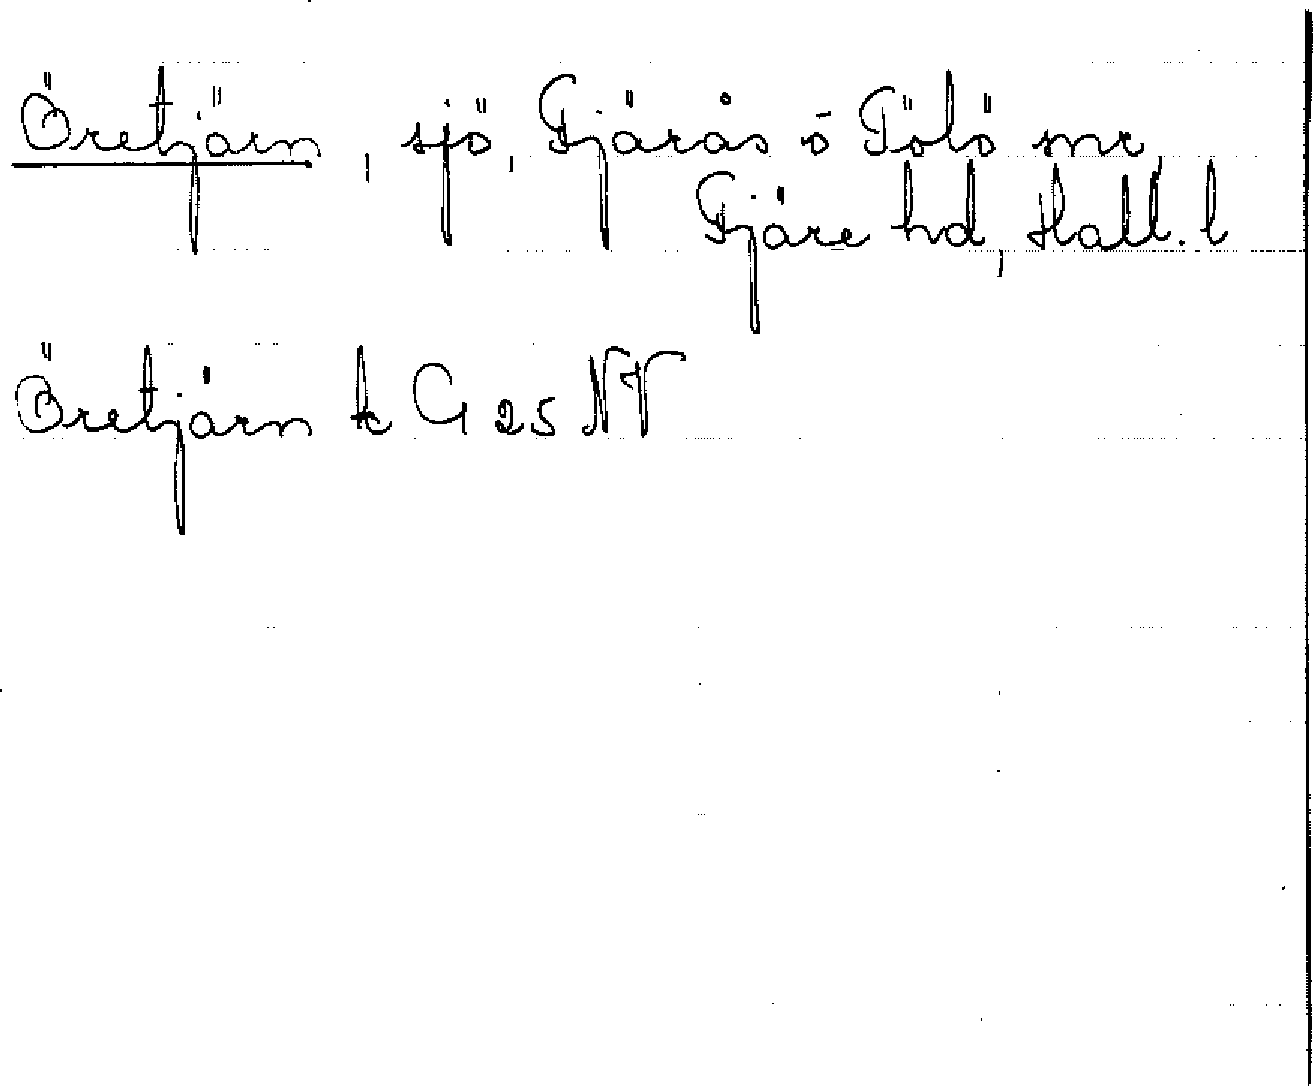 Öretjärn, sjö, Fjärås o Tölö snr,
Fjäre hd, Hall. l
Öretjärn tc G 25 NV